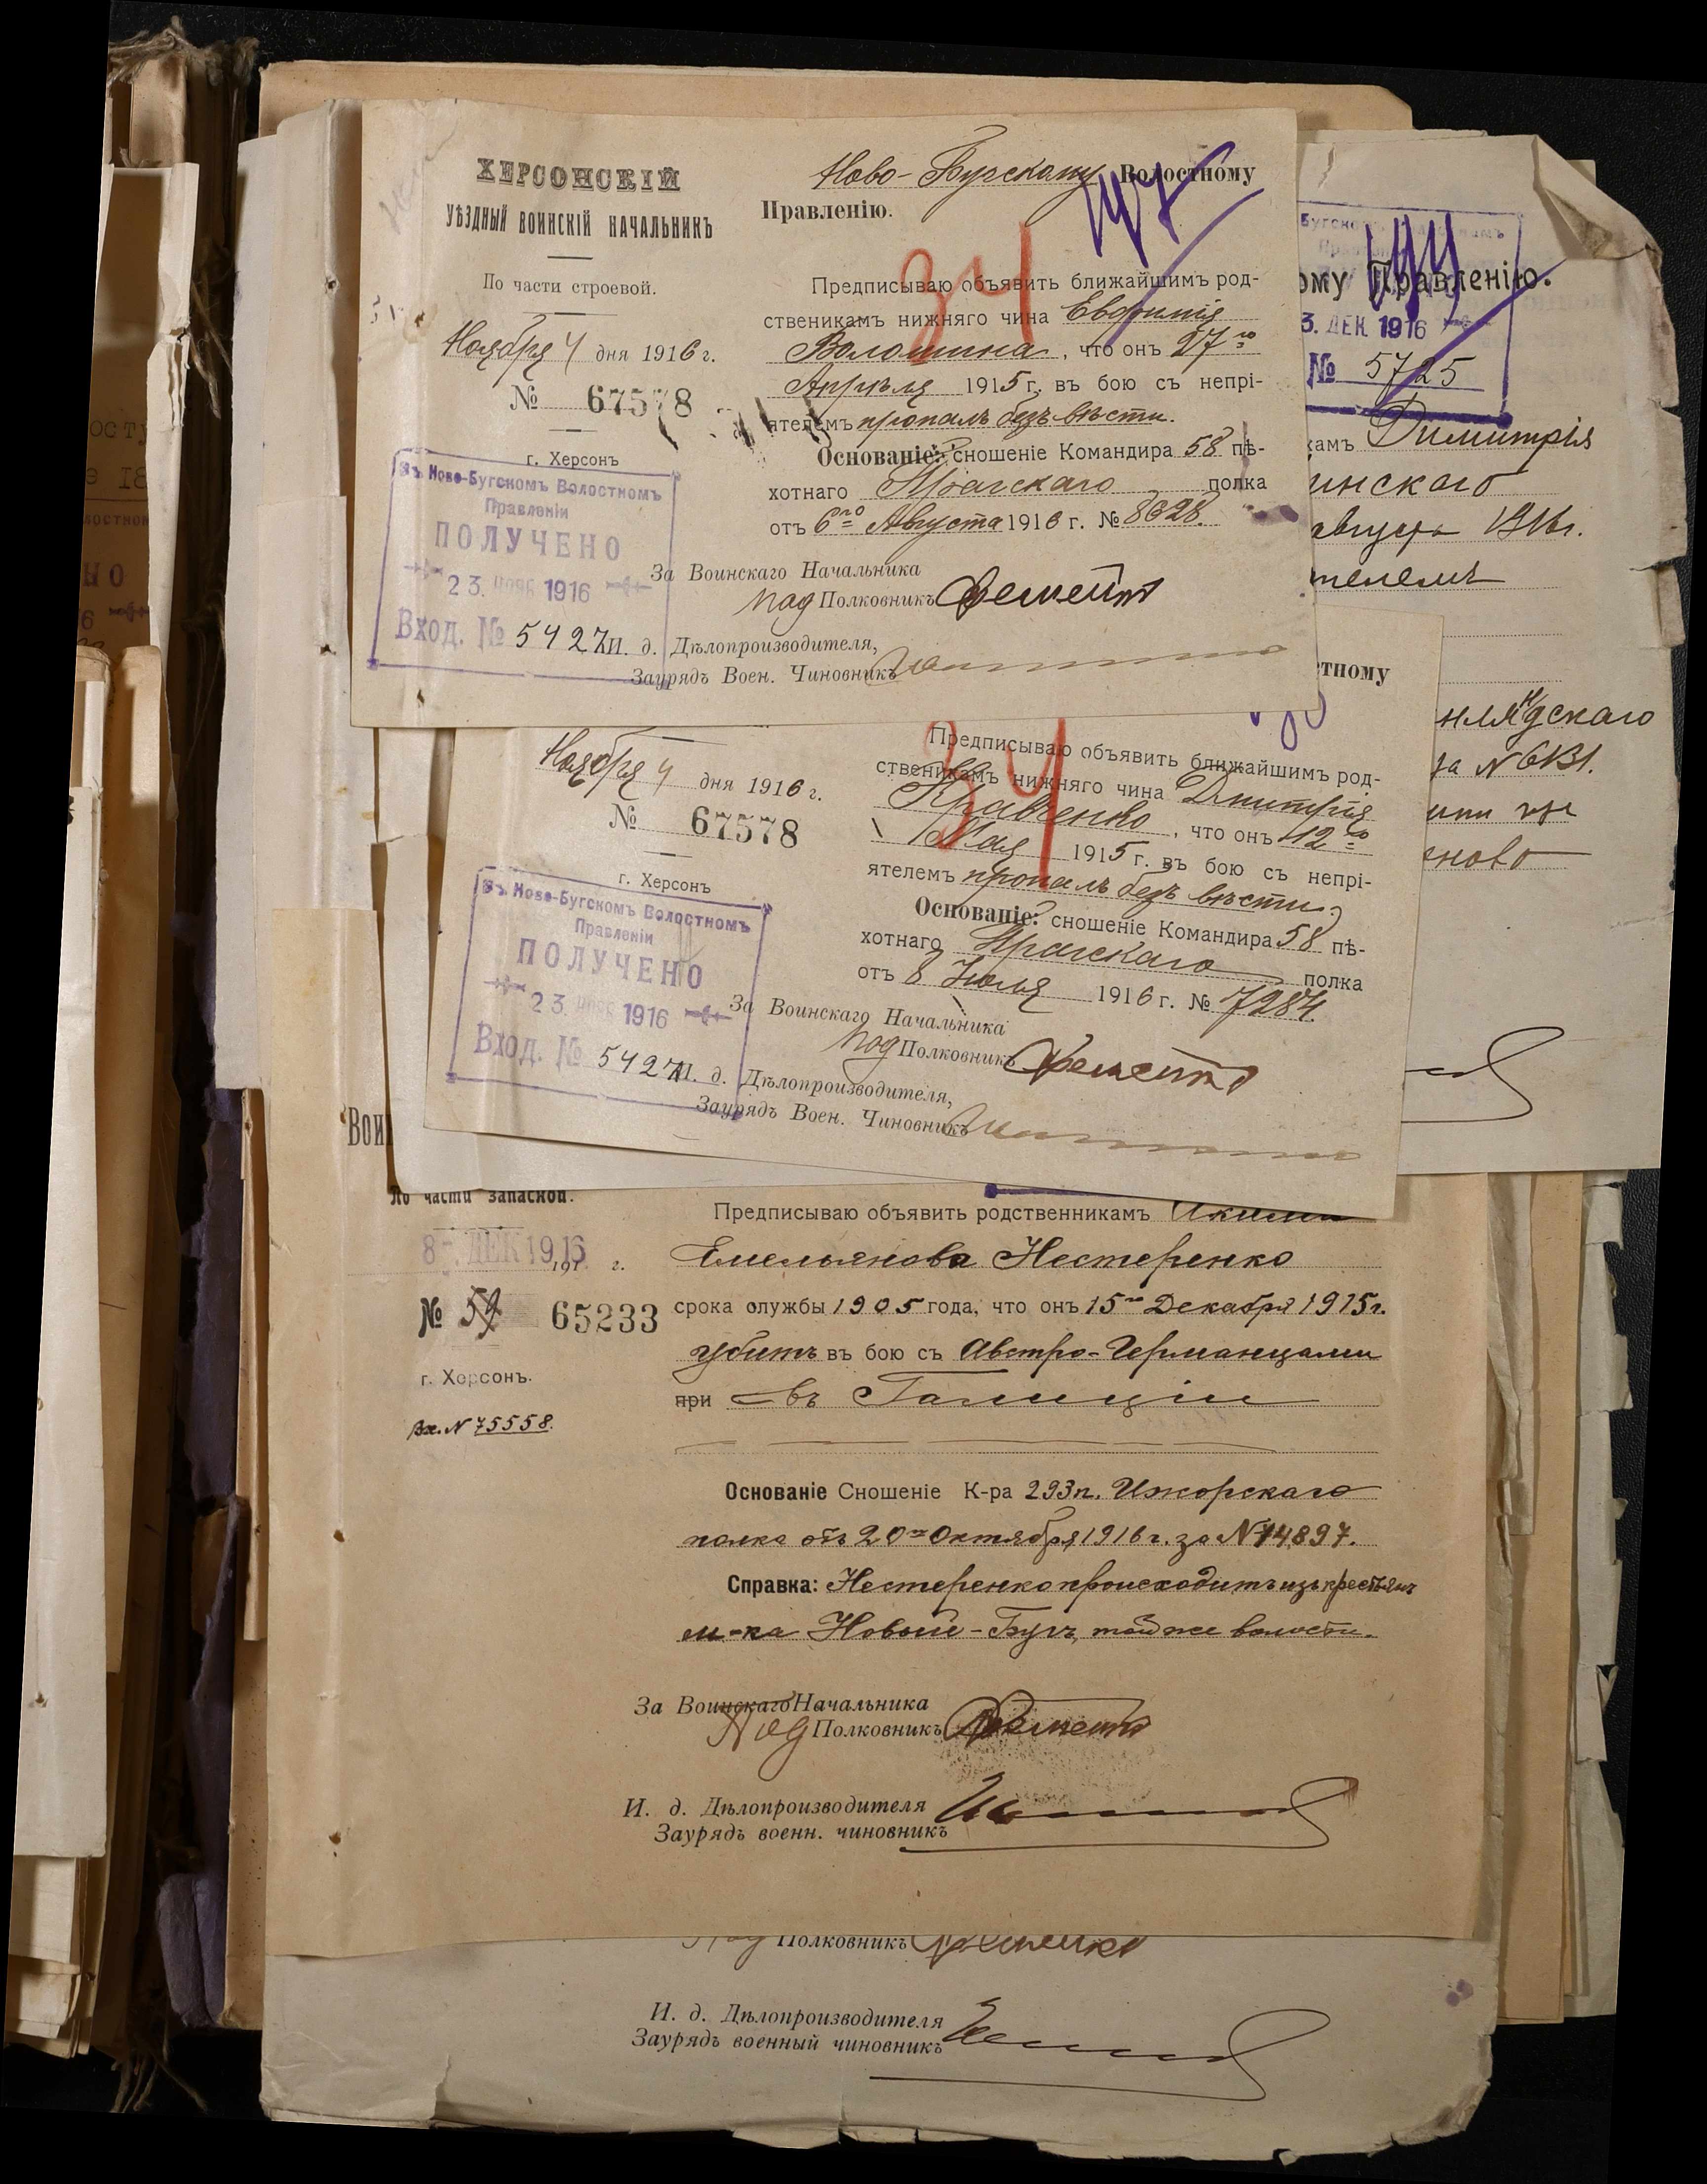 ХЕРСОНСКІЙ
УѢЗДНЫЙ ВОИНСКІЙ НАЧАЛЬНИКЪ
По части строевой.
Ноября 4 дня 1916 г.
№ 67578
г. Херсонъ
Въ Ново-Бугскомъ Волостномъ
Правленіи
ПОЛУЧЕНО
23. НОЯБ 1916
Вход. № 5427
Ново-Бугскому Волостному
Правленію.
34
Предписываю объявить ближайшимъ род-
ственикамъ нижняго чина Евфимія
Волошина, что онъ 27го
Апрѣля 1915 г. въ бою съ непрі-
ятелемъ пропалъ безъ вѣсти.
Основаніе: сношеніе Командира 58 пѣ-
хотнаго Прагскаго полка
отъ 6го Августа 1916 г. № 8628.
За Воинскаго Начальника
Под Полковникъ
И. д. Дѣлопроизводителя,
Заурядъ Воен. Чиновникъ
Бугско
ому Правленію.
3. ДЕК 1916
№ 5725
камъ Димитрія
инскаго
августа 1916г.
ятелемъ
нляндскаго
за № 6131.
еново
стному
Ноября 4 дня 1916 г.
№ 67578
г. Херсонъ
Въ Ново-Бугскомъ Волостномъ
Правленіи
ПОЛУЧЕНО
23. НОЯБ 1916
Вход. № 5427
34
Предписываю объявить ближайшимъ род-
ственикамъ нижняго чина Дмитрія
Кравченко, что онъ 12го
Мая 1915 г. въ бою съ непрі-
ятелемъ пропалъ безъ вѣсти.
Основаніе: сношеніе Командира 58 пѣ-
хотнаго Прагскаго полка
отъ 8 Іюля 1916 г. № 7284.
За Воинскаго Начальника
Под Полковникъ
И. д. Дѣлопроизводителя,
Заурядъ Воен. Чиновникъ
Вои
По части запасной.
8 - ДЕК 1916
191 г.
№ 59 65233
г. Херсонъ.
Вх. № 75558.
Предписываю объявить родственникамъ Акима
Емельянова Нестеренко
срока службы 1905 года, что онъ 15го Декабря 1915г.
убитъ въ бою съ Австро-Германцами
при въ Галиціи
Основаніе Сношеніе К-ра 293 п. Ижорскаго
полка отъ 20го Октября 1916 г. за № 14897.
Справка: Нестеренко происходитъ изъ крестьянъ
м-ка Новый-Бугъ, той же волости.
За Воинскаго Начальника
Под Полковникъ
И. д. Дѣлопроизводителя
Заурядъ военн. чиновникъ
Под Полковникъ
И. д. Дѣлопроизводителя
Заурядъ военный чиновникъ